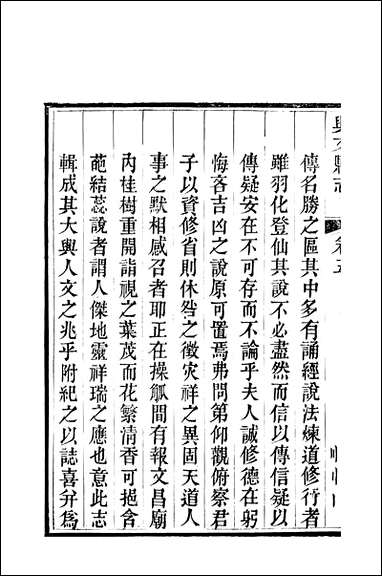 傳名勝之區其中多有誦經說法煉道修行者
雖羽化登仙其說不必盡然而信以傳信疑以
傳疑安在不可存而不論乎夫人誠修德在躬
悔吝吉凶之說原可置焉弗問第仰觀俯察君
子以資修省則休咎之徵灾祥之異固天道人
事之默相感召者耶正在操觚間有報文昌廟
內桂樹重開詣視之葉茂而花繁清香可挹含
葩結蕊說者謂人傑地靈祥瑞之應也意此志
輯成其大興人文之兆乎附紀之以誌喜幷為